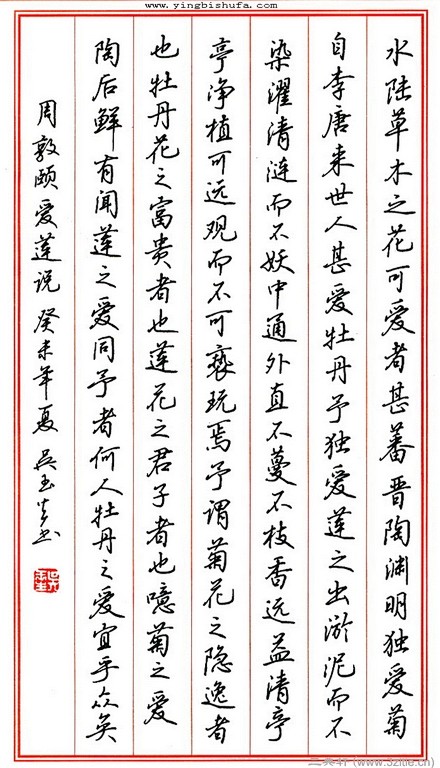 www.yingbishufa.com
水陆草木之花可爱者甚蕃晋陶渊明独爱菊
自李唐来世人甚爱牡丹予独爱莲之出淤泥而不
染濯清涟而不妖中通外直不蔓不枝香远益清亭
亭净植可远观而不可亵玩焉予谓菊花之隐逸者
也牡丹花之富贵者也莲花之君子者也噫菊之爱
陶后鲜有闻莲之爱同予者何人牡丹之爱宜乎众矣
周敦颐爱莲说 癸未年夏 吴玉生书